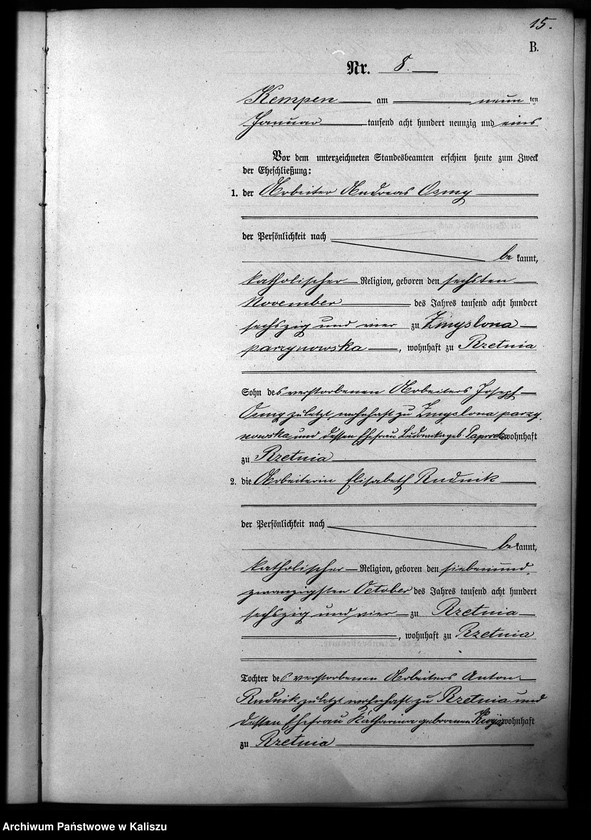 15.
B.
Nr. 8.
Kempen am neun ten
Januar tausend acht hundert neunzig und eins
Vor dem unterzeichneten Standesbeamten erschien heute zum Zweck
der Eheschließung:
1. der Arbeiter Andreas Osmy
der Persönlichkeit nach
be kannt,
katholischer Religion, geboren den sechsten
November des Jahres tausend acht hundert
sechszig und vier zu Zmyslona
parzynowska, wohnhaft zu Rzetnia
Sohn des verstorbenen Arbeiters Joseph
Osmy zuletzt wohnhaft zu Zmyslona parzy
nowska und dessen Ehefrau Ludowika geb. wohnhaft
zu Rzetnia
2. die Arbeiterin Elisabeth Rudnik
der Persönlichkeit nach
be kannt,
katholischer Religion, geboren den siebenund
zwanzigsten October des Jahres tausend acht hundert
sechszig und vier zu Rzetnia
, wohnhaft zu Rzetnia
Tochter des verstorbenen Arbeiters Anton
Rudnik zuletzt wohnhaft zu Rzetnia und
dessen Ehefrau Katharina geborenen wohnhaft
zu Rzetnia
Archiwum Państwowe w Kaliszu